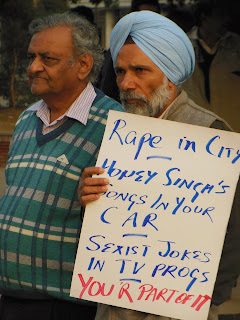 Rape in City
HONEY SINGH'S
SONGS IN YOUR
CAR
SEXIST JOKES
IN TV PROGS
YOU'R PART OF IT